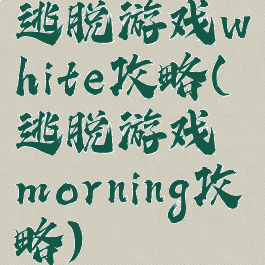 逃脱游戏w
hite攻略(
逃脱游戏
morning攻
略)